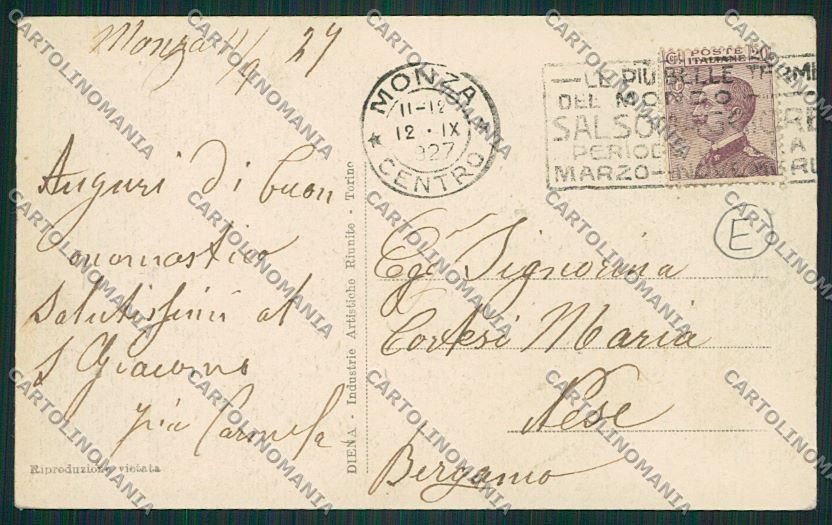 Monza 11/9 27
MONZA
11-12
12 · IX
1927
CENTRO
LE PIU BELLE TERME
DEL MONDO
SALSOMAGGIORE
PERIODO
MARZO-NOVEMBRE
POSTE
ITALIANE
E
Auguri di buon
onomastico
salutissimi al
S Giacomo
zia Carmela
Egr Signorina
Cortesi Maria
Nese
Bergamo
DIENA - Industrie Artistiche Riunite - Torino
Riproduzione vietata
CARTOLINOMANIA